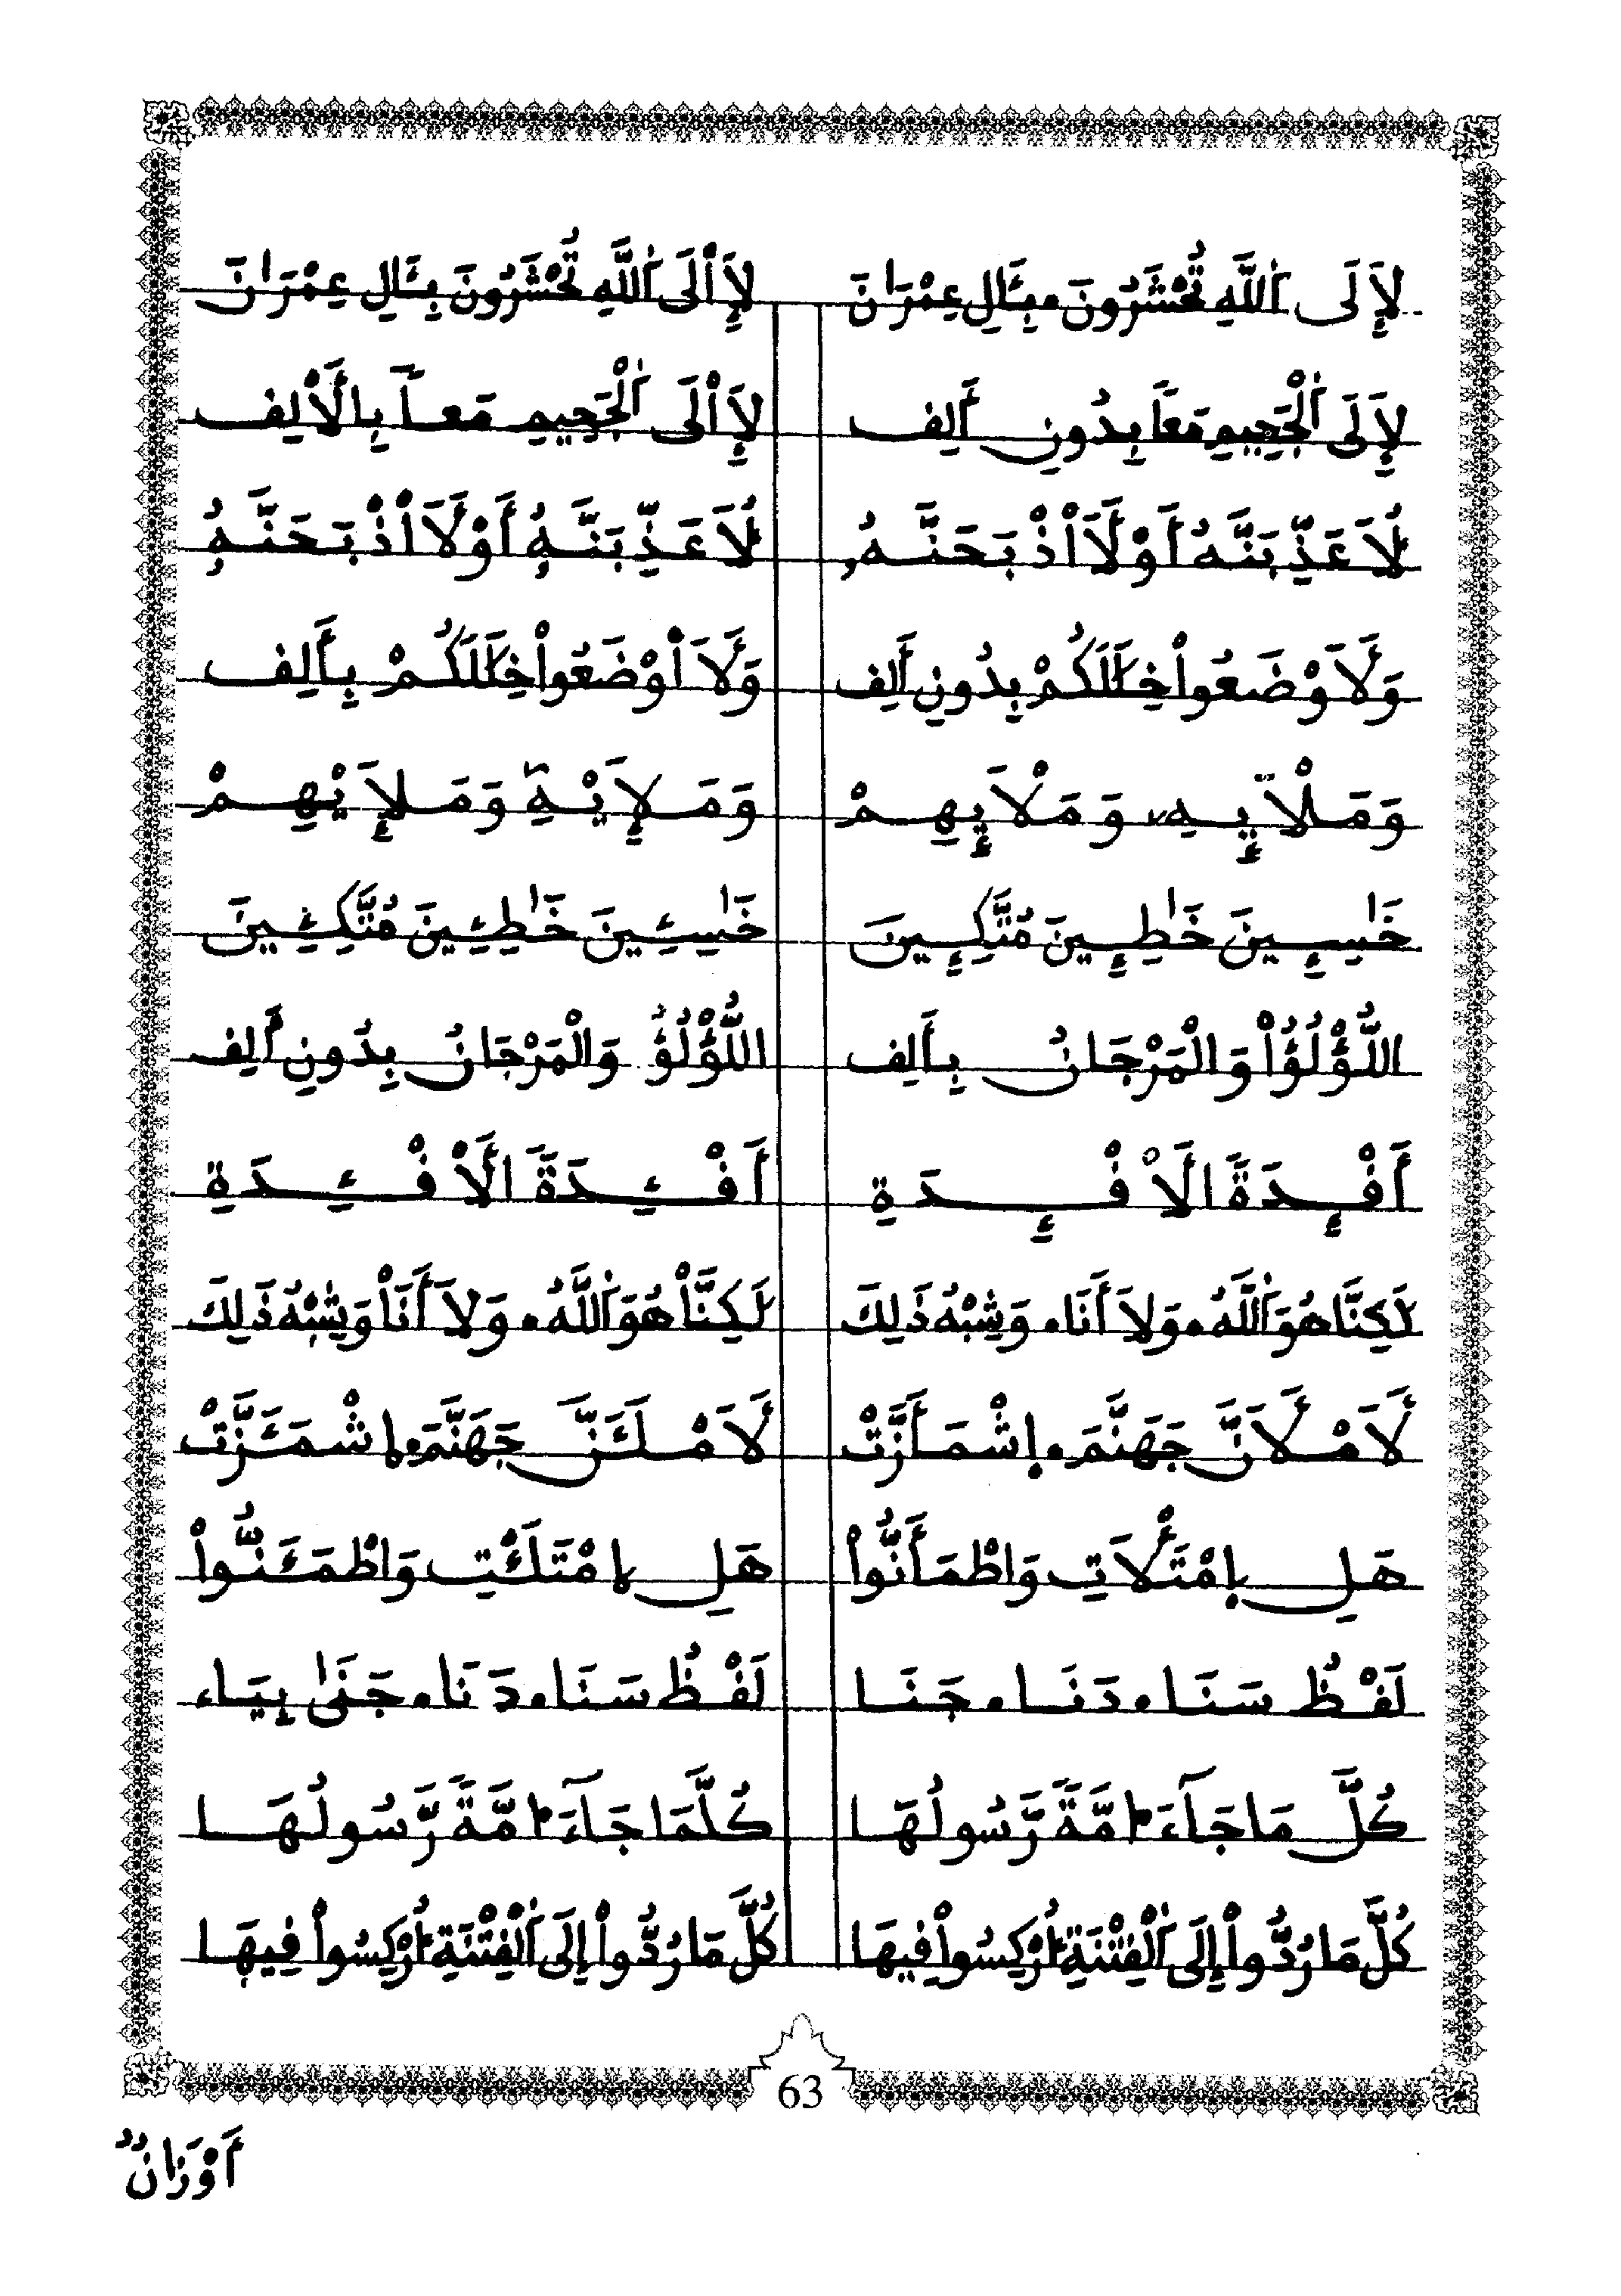 لَإِلَى اَ۬للَّهِ تُحْشَرُونَ ۰ بِـَٔالِ عِمْرَٰنَ لَإِاْلَى اَ۬للَّهِ تُحْشَرُونَ بِـَٔالِ عِمْرَٰنَ
لَإِلَى اَ۬لْجَحِيمِ مَعاً بِدُونِ أَلِف لَإِاْلَى اَ۬لْجَحِيمِ مَعاً بِالْأَلِف
لَأُعَذِّبَنَّهُ أَوْ لَأَاْذْبَحَنَّهُۥ لَأُعَذِّبَنَّهُۥ أَوْ لَأَاْذْبَحَنَّهُۥ
وَلَأَوْضَعُواْ خِلَٰلَكُمْ بِدُونِ أَلِف وَلَأَاْوْضَعُواْ خِلَٰلَكُمْ بِأَلِف
وَمَلَإِيْهِۦ وَمَلَإِيْهِمْ وَمَلَإِيْهِۦ وَمَلَإِيْهِمْ
خَٰسِـِٕينَ خَٰطِـِٕينَ مُتَّكِـِٕينَ خَٰسِئِينَ خَٰطِئِينَ مُتَّكِئِينَ
اللُّؤْلُؤُاْ وَالْمَرْجَانُ بِأَلِف اللُّؤْلُؤُ وَالْمَرْجَانُ بِدُونِ أَلِف
أَفْـِٕدَةً الَأفْـِٕدَةِ أَفْئِدَةً الَأفْئِدَةِ
لَّٰكِنَّا هُوَ اَ۬للَّهُ ۰ وَلَا أَنَا ۰ وَشِبْهُ ذَلِكَ لَّٰكِنَّاْ هُوَ اَ۬للَّهُ ۰ وَلَا أَنَاْ وَشِبْهُ ذَلِكَ
لَأَمْلَأَنَّ جَهَنَّمَ ۰ اِشْمَأَزَّتْ لَأَمْلَـَٔنَّ جَهَنَّمَ ۰ اِشْمَـَٔزَّتْ
هَلِ اِمْتَلَأْتِ وَاطْمَأَنُّواْ هَلِ اِمْتَلَـْٔتِ وَاطْمَـَٔنُّواْ
لَفْظُ سَنَا ۰ دَنَا ۰ جَنَا لَفْظُ سَنَا ۰ دَنَا ۰ جَنَىٰ بِيَاء
كُلَّ مَا جَآءَ ا۟مَّةً رَّسُولُهَا كُلَّمَا جَآءَ ا۟مَّةً رَّسُولُهَا
كُلَّ مَا رُدُّواْ إِلَى اَ۬لْفِتْنَةِ أُرْكِسُواْ فِيهَا كُلَّ مَا رُدُّواْ إِلَى اَ۬لْفِتْنَةِ أُرْكِسُواْ فِيهَا
63
أَوْزَانٌ